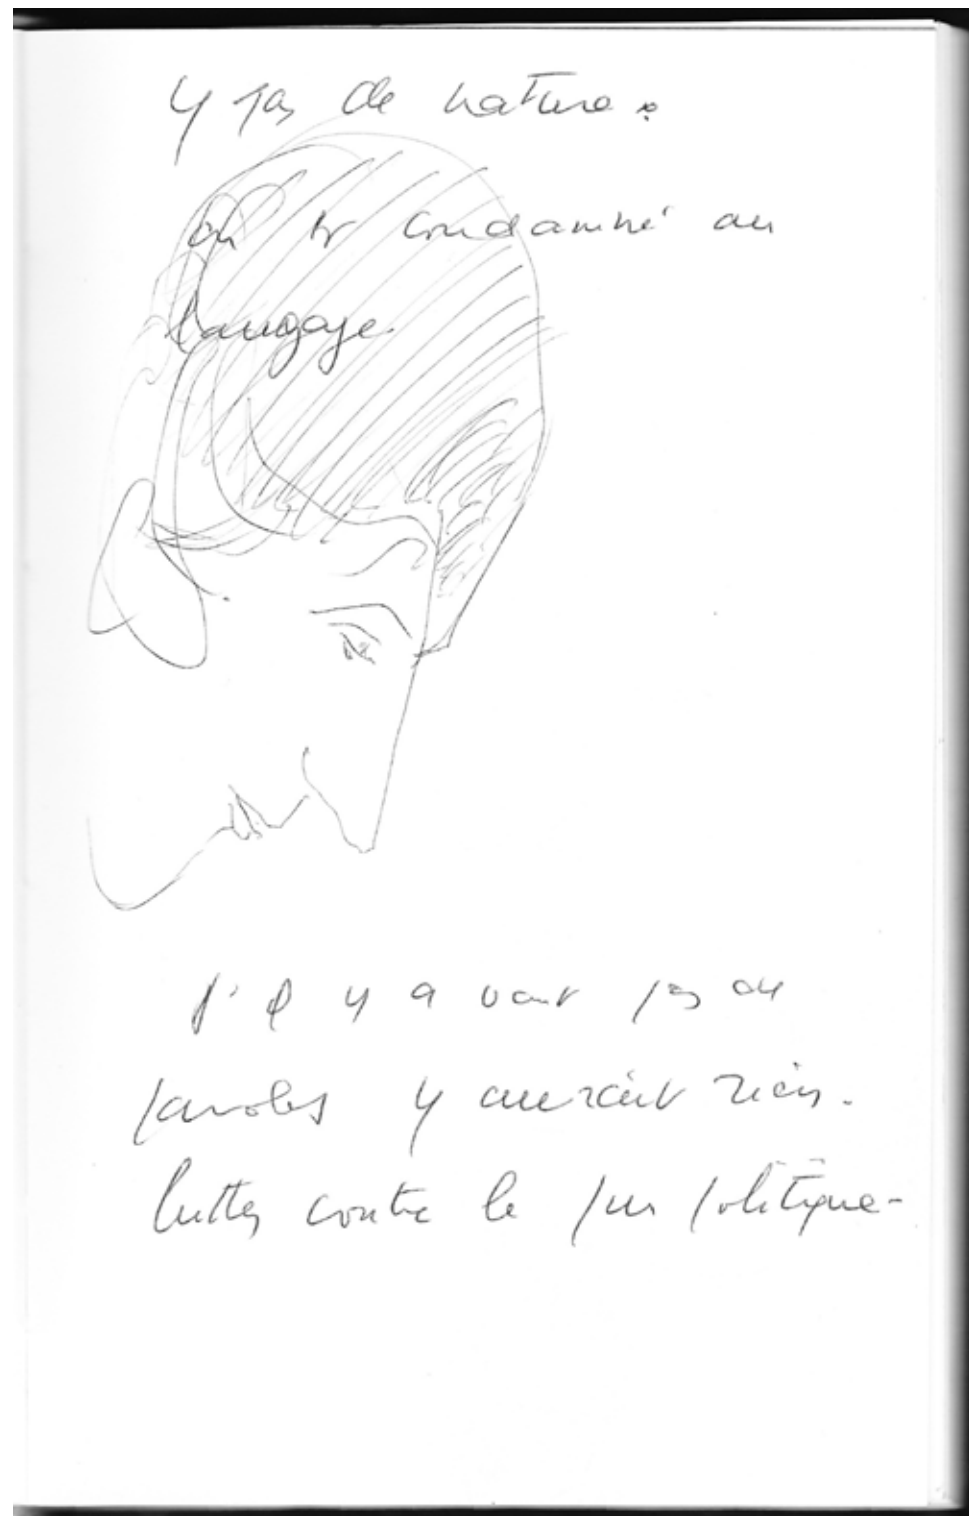 y pas de nature :
on est condamné au
langage.
s'il y avait pas de
paroles y aurait rien.
lutter contre le pur politique-